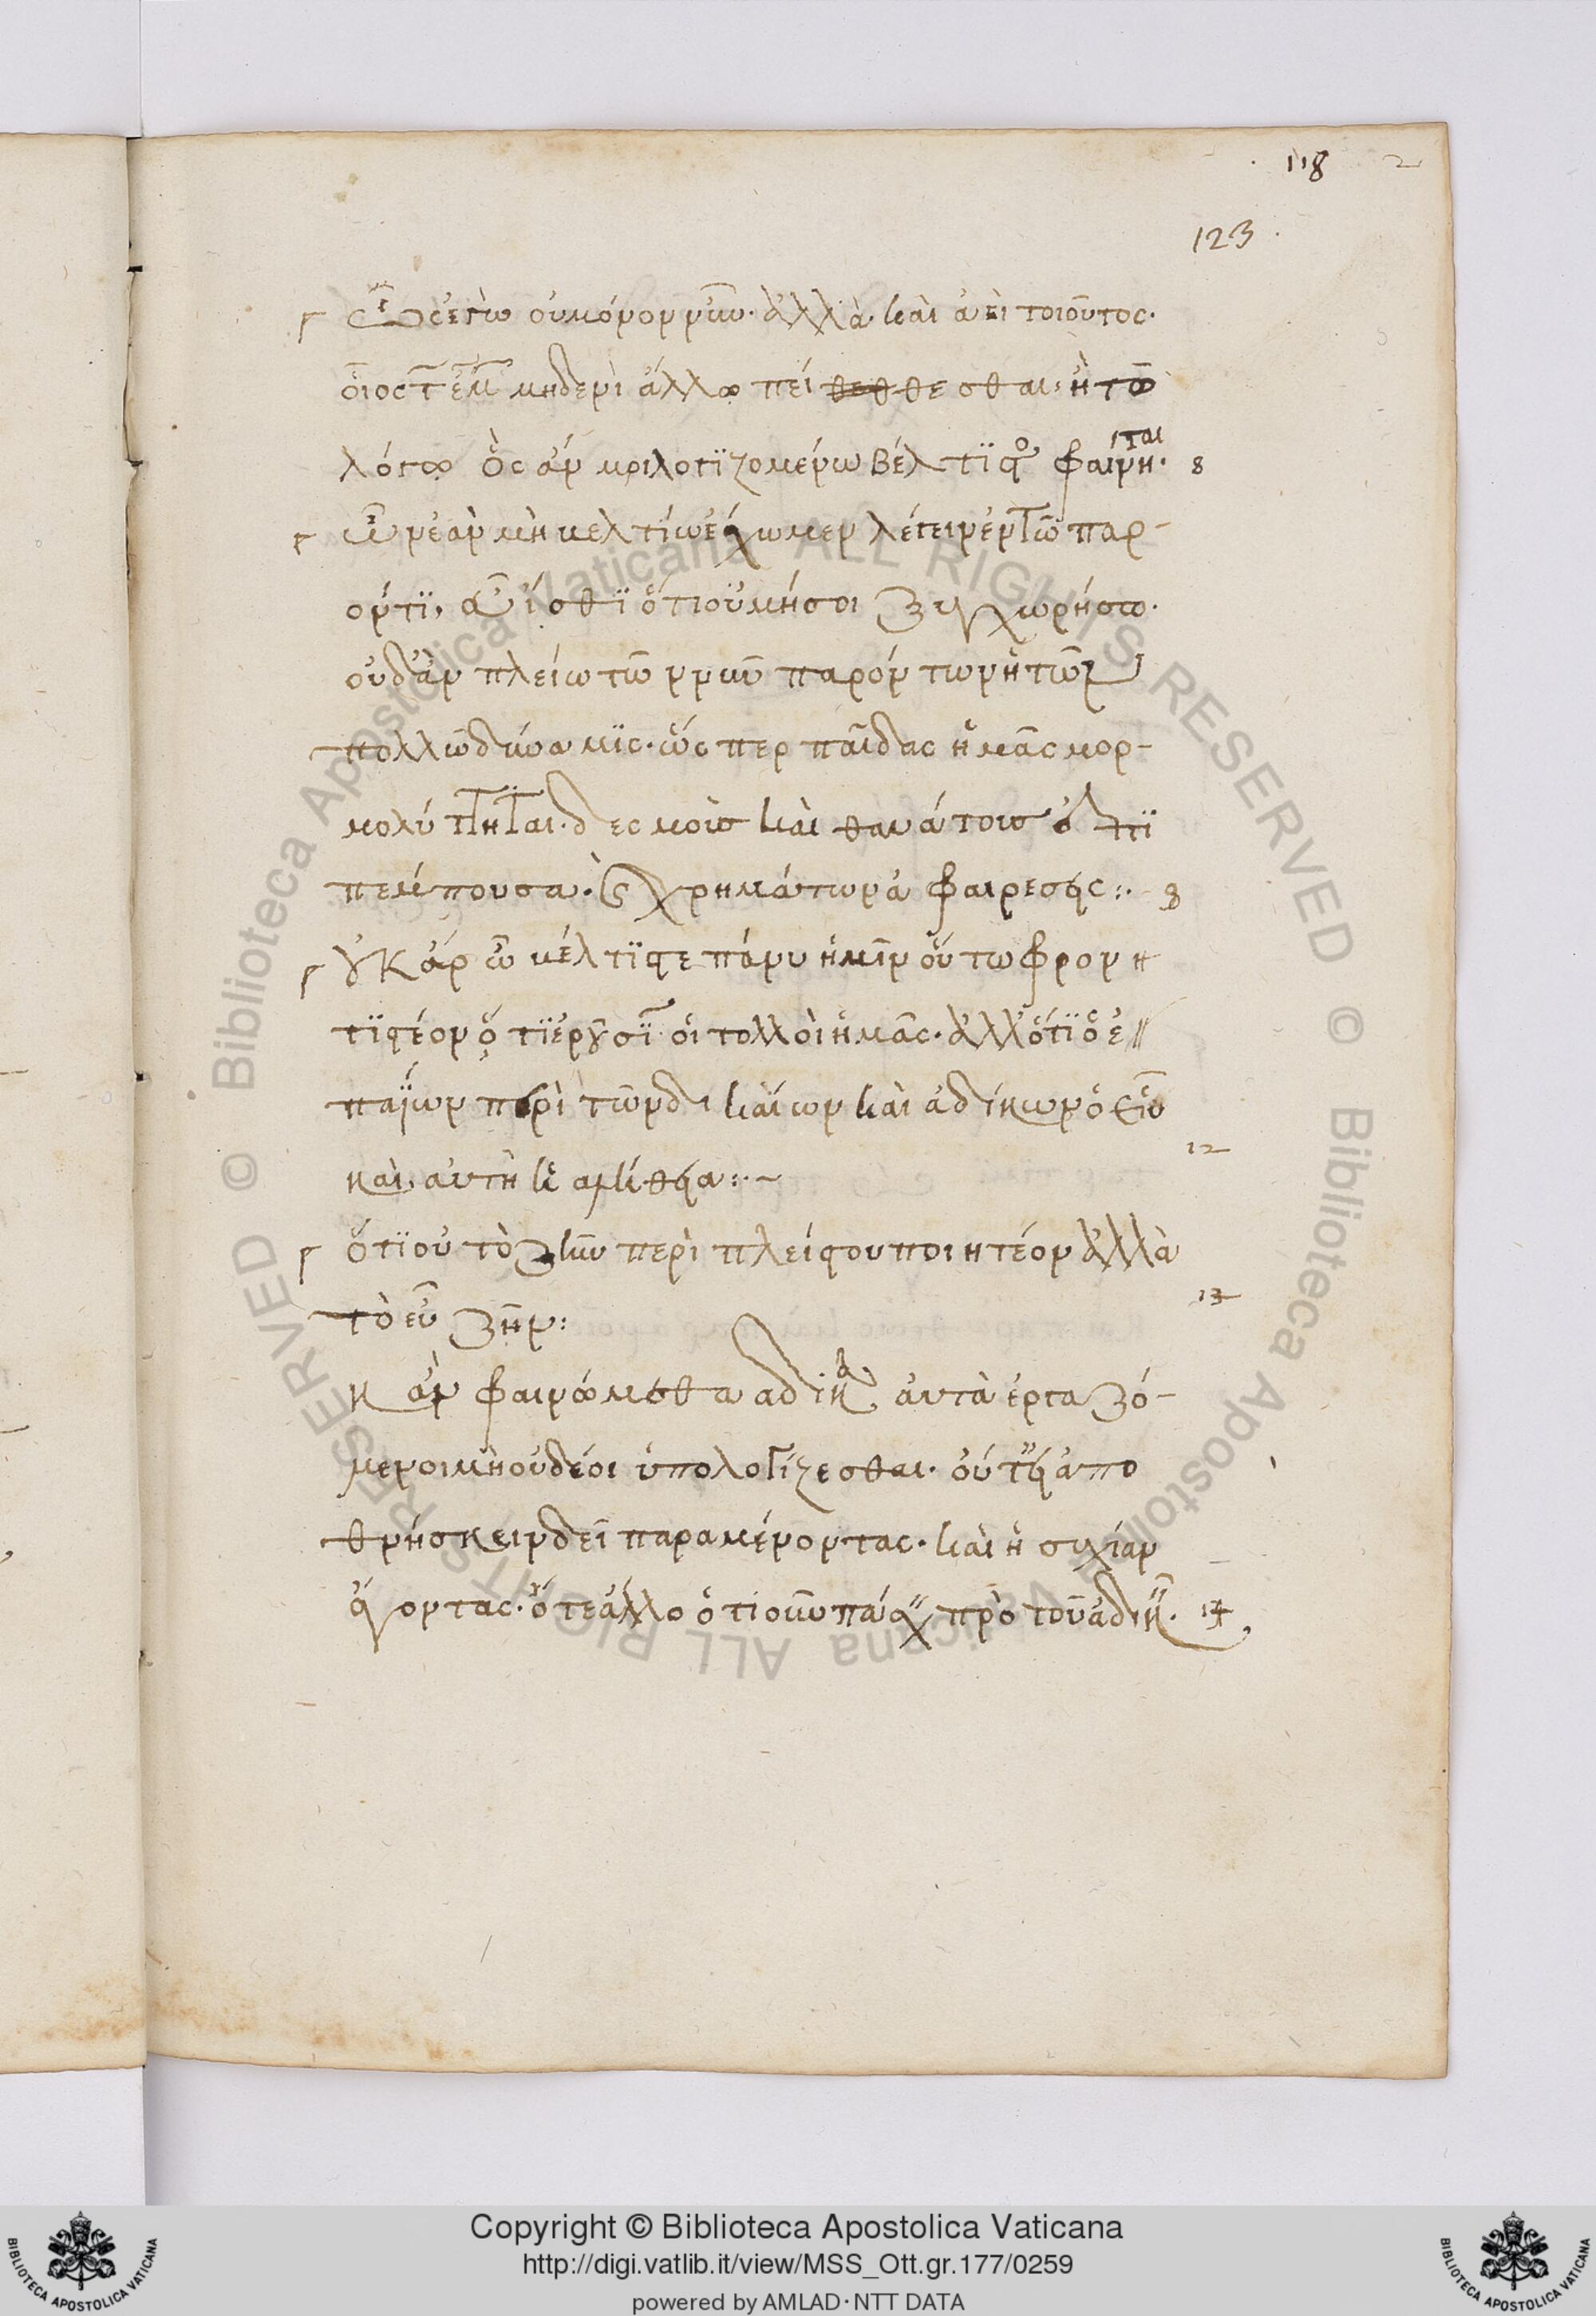 118 2
123
Ὡς ἐγὼ οὐ μόνον νῦν· ἀλλὰ καὶ ἀεὶ τοιοῦτος·
οἷος τῶν ἐμῶν μηδενὶ ἄλλω πείθεσθαι· ἢ τῶ
λόγω ὃς ἄν μοι λογϊζομένω βέλτϊστος φαίνηται· 8
ὧν ἐὰν μὴ βελτίω ἔχωμεν λέγειν ἐν τῶ παρ-
όντϊ, εὖ ἴσθϊ ὅτι οὐ μή σοι ξυγχωρήσω·
οὐδ' ἂν πλείω τῶν νῦν παρόντων ἡ τῶν
πολλῶν δύναμϊς· ὥσπερ παῖδας ἡμᾶς μορ-
μολύττηται· δεσμοὺς καὶ θανάτους ἐπϊ
πέμπουσα· καὶ χρημάτων ἀφαιρέσεις :· 9
οὐκ ἄρ' ὦ βέλτϊστε πάνυ ἡμῖν οὕτω φρον
τϊστέον ὅ τϊ ἐροῦσϊν οἱ πολλοὶ ἡμᾶς· ἀλλ' ὅτϊ ὁ ἐ
παΐων περὶ τῶν δικαίων καὶ ἀδίκων ὁ εἷς
καὶ αὐτὴ ἡ ἀλήθεια :· ~ 12
ὅτϊ οὐ τὸ ζῆν περὶ πλείστου ποιητέον ἀλλὰ
τὸ εὖ ζῆν : 13
κἂν φαινώμεθα ἄδικα αὐτὰ ἐργαζό-
μενοι μὴ οὐ δέοι ὑπολογίζεσθαι· οὔτ' εἰ ἀπο
θνήσκειν δεῖ παραμένοντας· καὶ ἡσυχίαν
ἄγοντας· οὔτε ἄλλο ὁτιοῦν πάσχειν πρὸ τοῦ ἀδικεῖν. 14
Copyright © Biblioteca Apostolica Vaticana
http://digi.vatlib.it/view/MSS_Ott.gr.177/0259
powered by AMLAD·NTT DATA